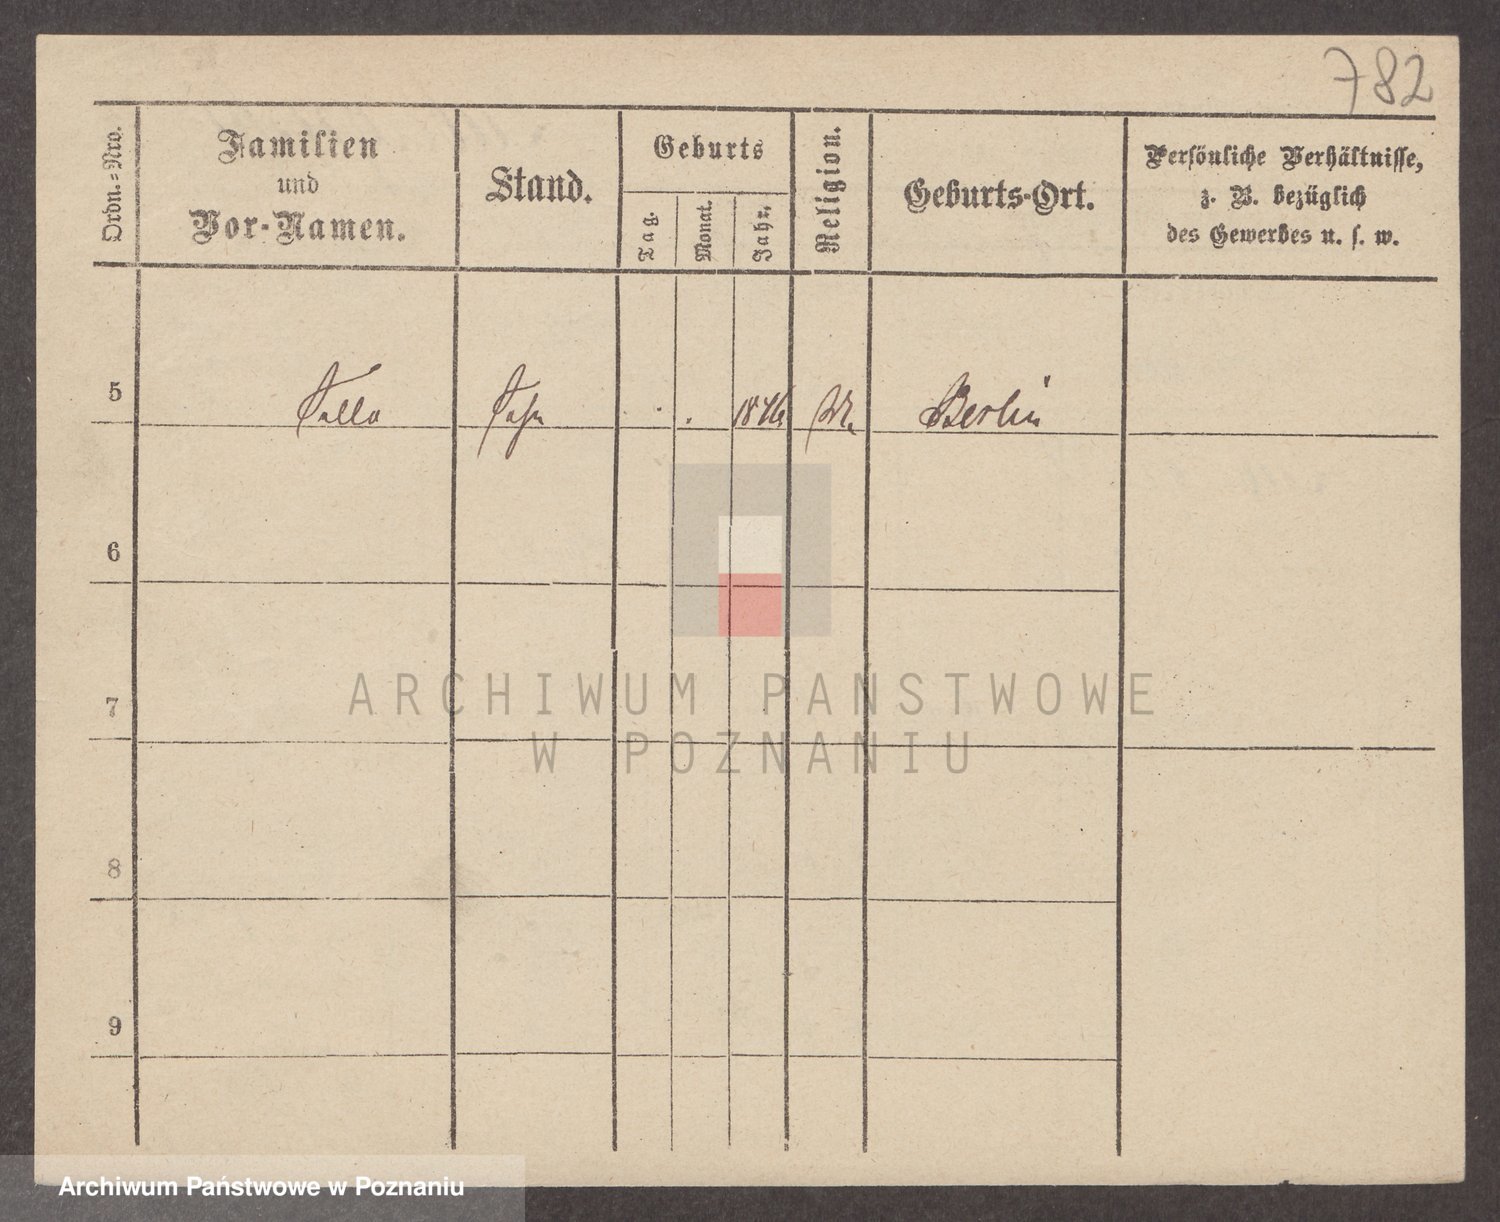 782
Ordn.=Nro.
Familien
und
Vor-Namen.
Stand.
Geburts
Tag.
Monat.
Jahr.
Religion.
Geburts-Ort.
Persönliche Verhältnisse,
z. B. bezüglich
des Gewerbes u. s. w.
5
1846
Berlin
6
7
8
9
ARCHIWUM PAŃSTWOWE
W POZNANIU
Archiwum Państwowe w Poznaniu